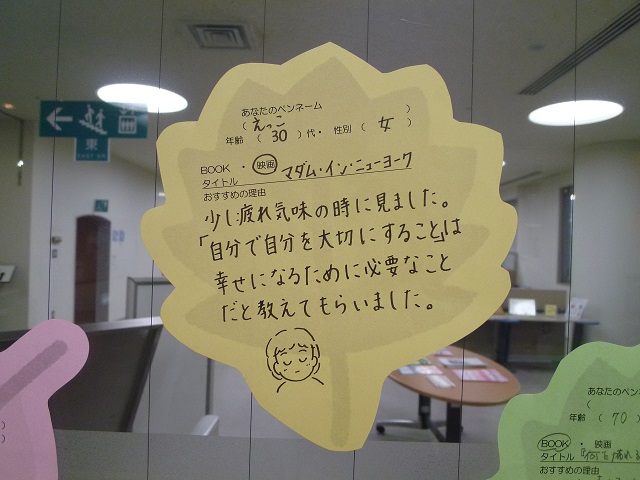 あなたのペンネーム
( えっこ )
年齢 ( 30 ) 代・ 性別 ( 女 )
BOOK ・ 映画
タイトル マダム・イン・ニューヨーク
おすすめの理由
少し疲れ気味の時に見ました。
「自分で自分を大切にすること」は
幸せになるために必要なこと
だと教えてもらいました。
東
あなたのペンネーム
(
年齢 ( 70 )
BOOK ・ 映画
タイトル
おすすめの理由